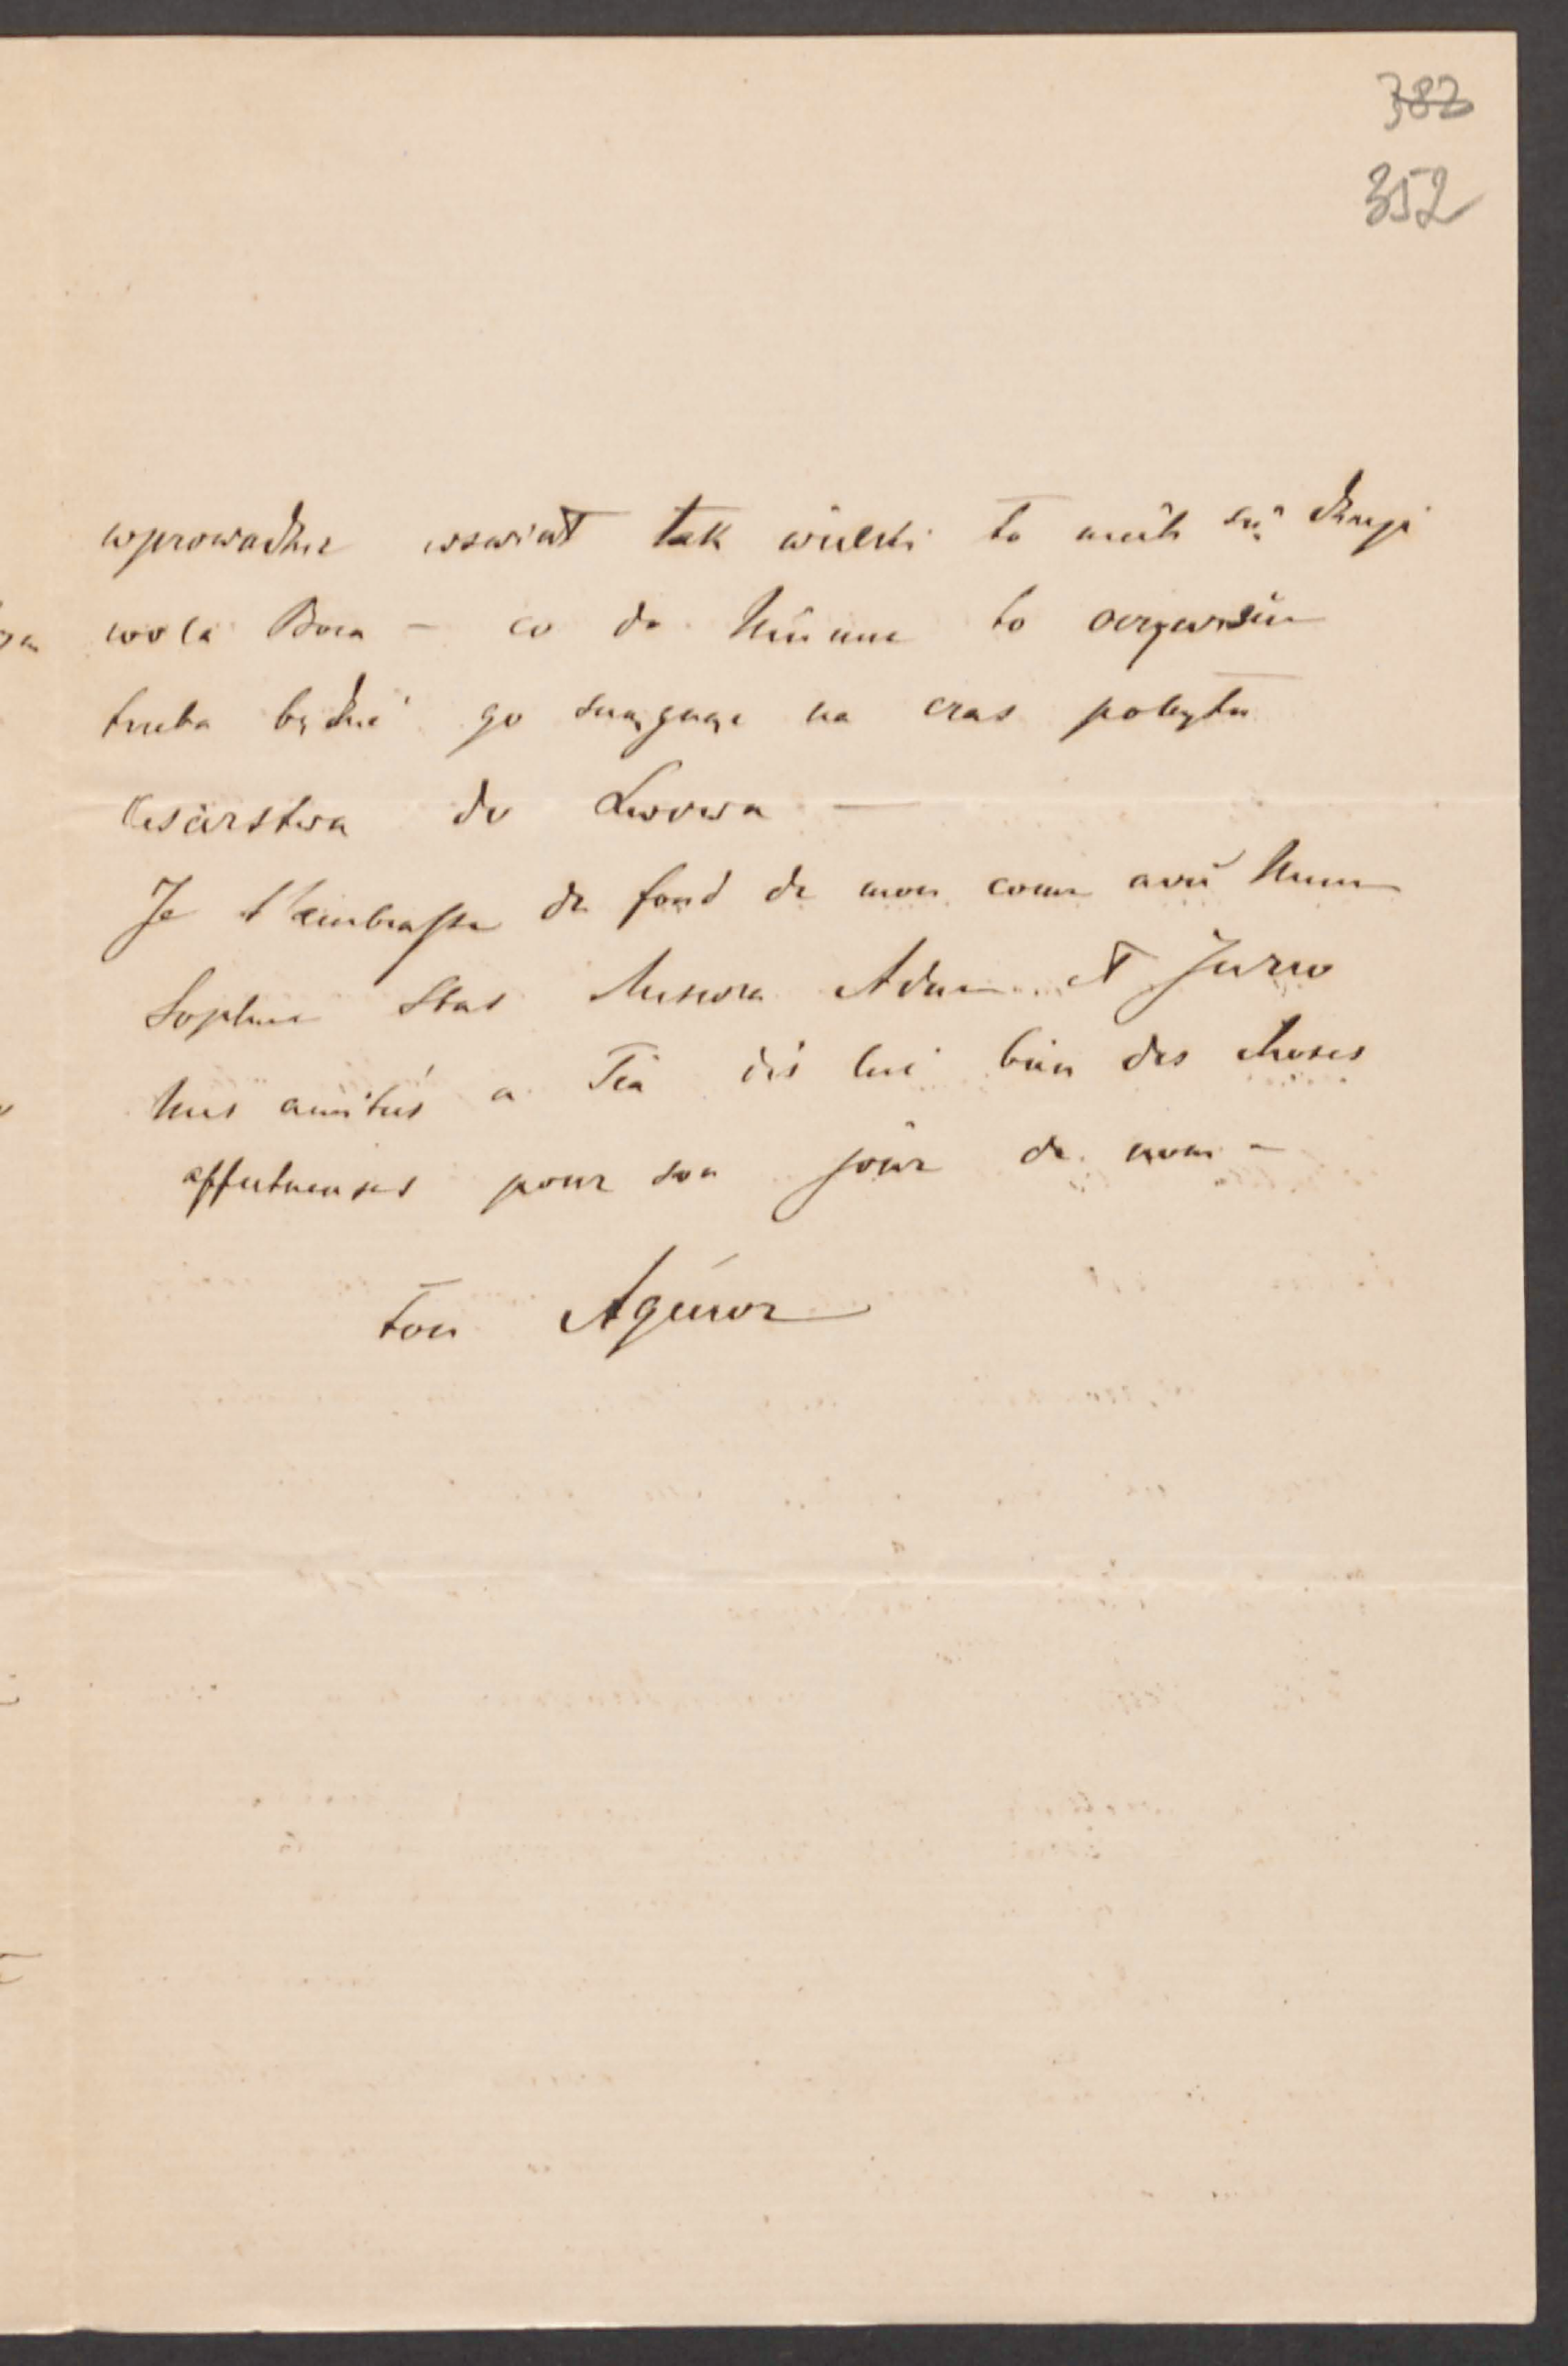 382
352
wprowadzic wswiat tak wielki to niech się dzieje
wola Boza – co do to oczywiscie
trzeba będzie go na czas pobytu
Cesarstwa do Lwowa –
Je t'embrasse du fond de mon coeur avec
Sophie Stas Adam et Jurio
Mes amitiés a Tia dis lui bien des choses
affectueuses pour son jour de nom –
ton Agénor